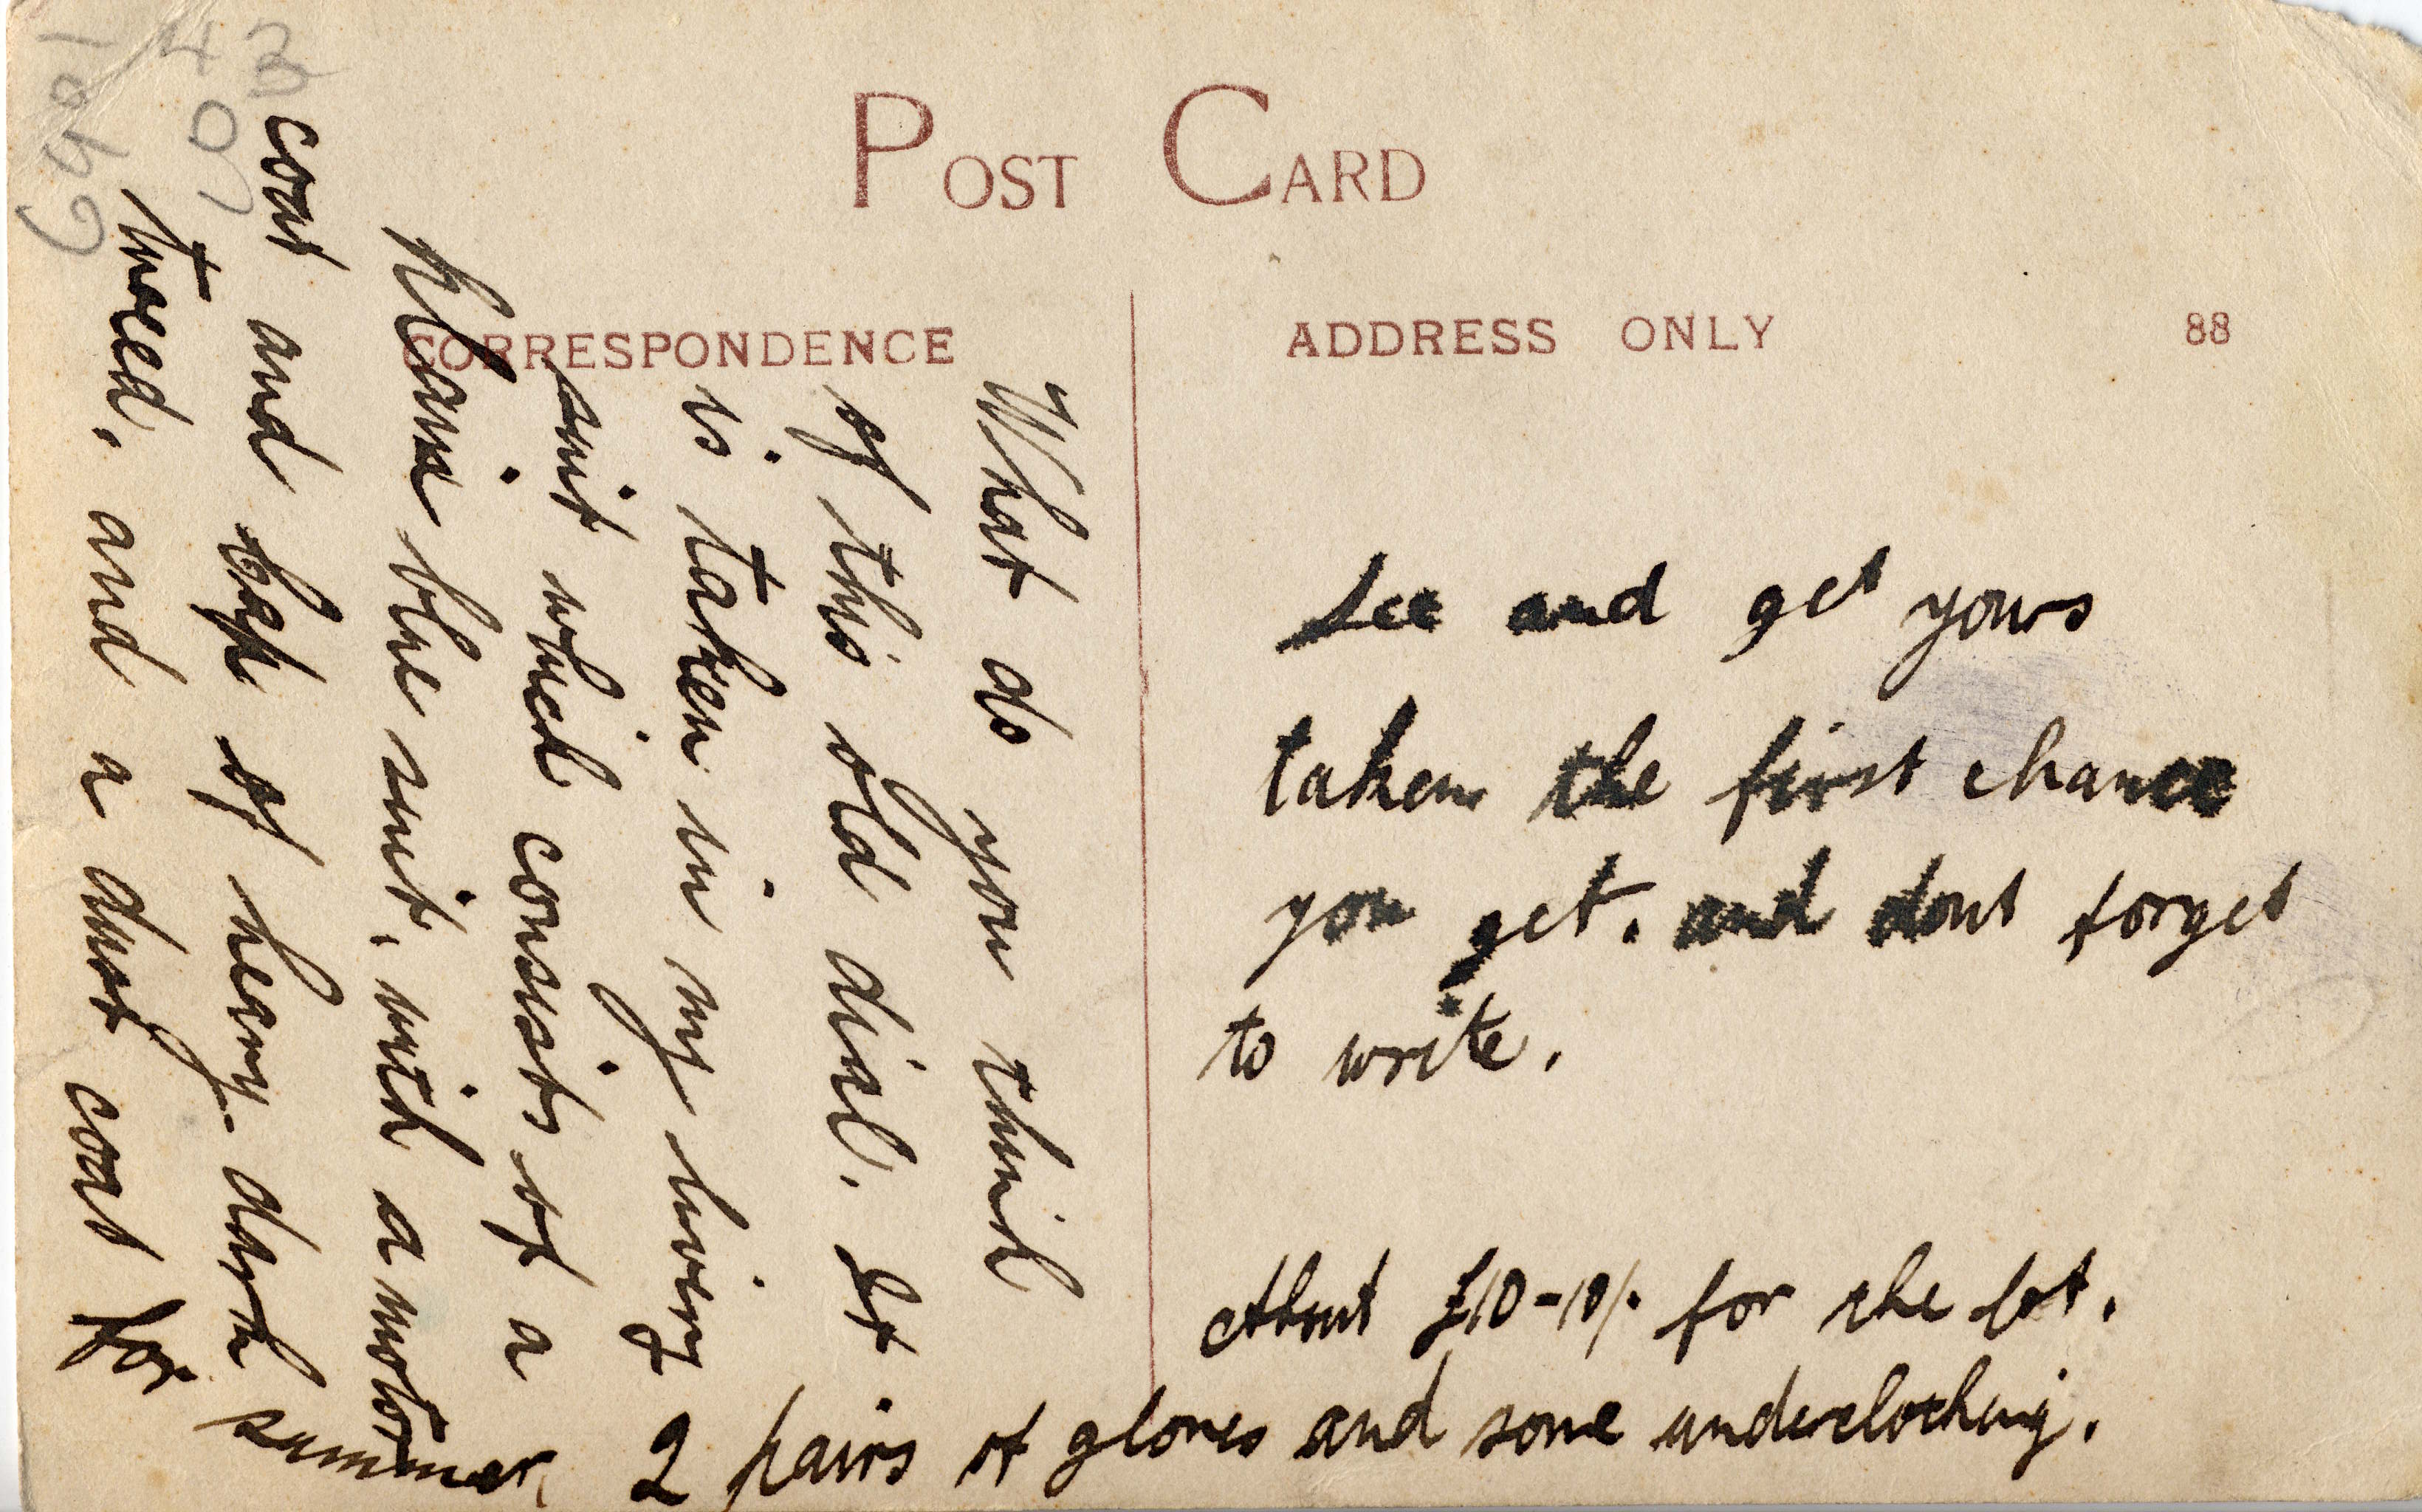 POST CARD
CORRESPONDENCE
ADDRESS ONLY
88
What do you think
of this old dial. It
is taken in my livery
suit which consists of a
plain blue suit, with a motor
coat and cap of heavy dark
tweed, and a dust coat for
summer, 2 pairs of gloves and some underclothing.
About £10-10/- for the lot.
See and get yours
taken the first chance
you get. and dont forget
to write.